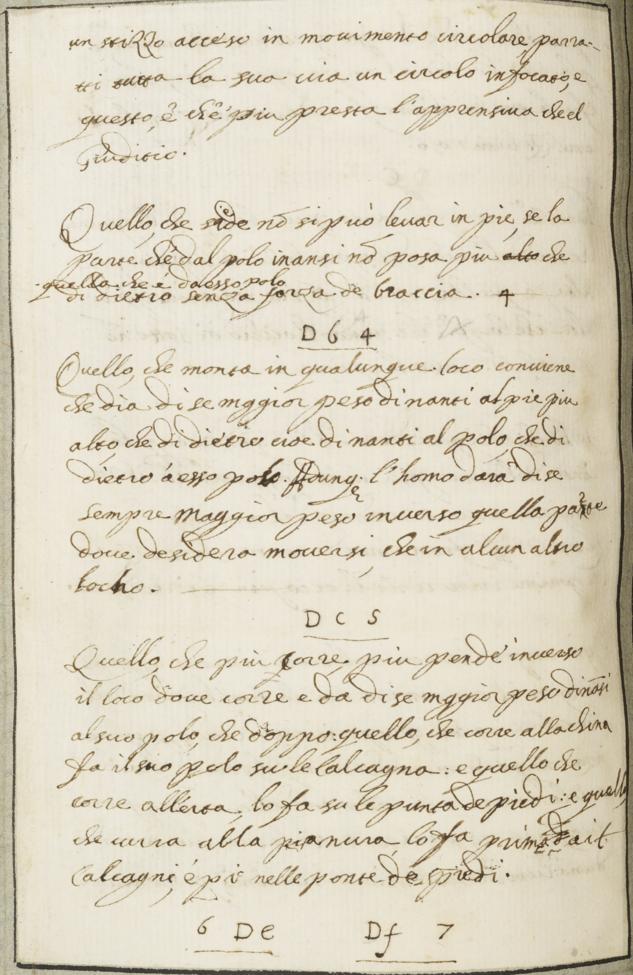 un stizzo acceso in movimento circolare, parra-
tti tutta la sua via un circolo infocato, e
questo, è chè più presta l'apprensiva che el
Giuditio.
Quello, che siede nõ si può levar in pie, se la
parte chè dal polo inansi nõ posa più alto che
quella che è da esso polo
di dietro senza forza de braccia. 4
D 6 4
Quello, che monta in qualunque loco conviene
che dia di se mggior peso dinanti al pie più
alto, che di dietro cioe dinanti al polo, che di
dietro à esso polo. Adunq; l'homo darà di se
sempre maggior peso inverso quella parte
dove desidera moversi, che in alcun altro
locho.
D c 5
Quello, che più corre più pende inverso
il loco dove corre e da di se mggior peso dinãsi
al suo polo, che doppo: quello, che corre alla china
fa il suo polo su le calcagna: e quello che
corre all'erta, lo fa su le punta de piedi: e quello
che curra alla pianura, lo fa prima
Calcagni, é pio nelle ponte de piedi.
6 De Df 7